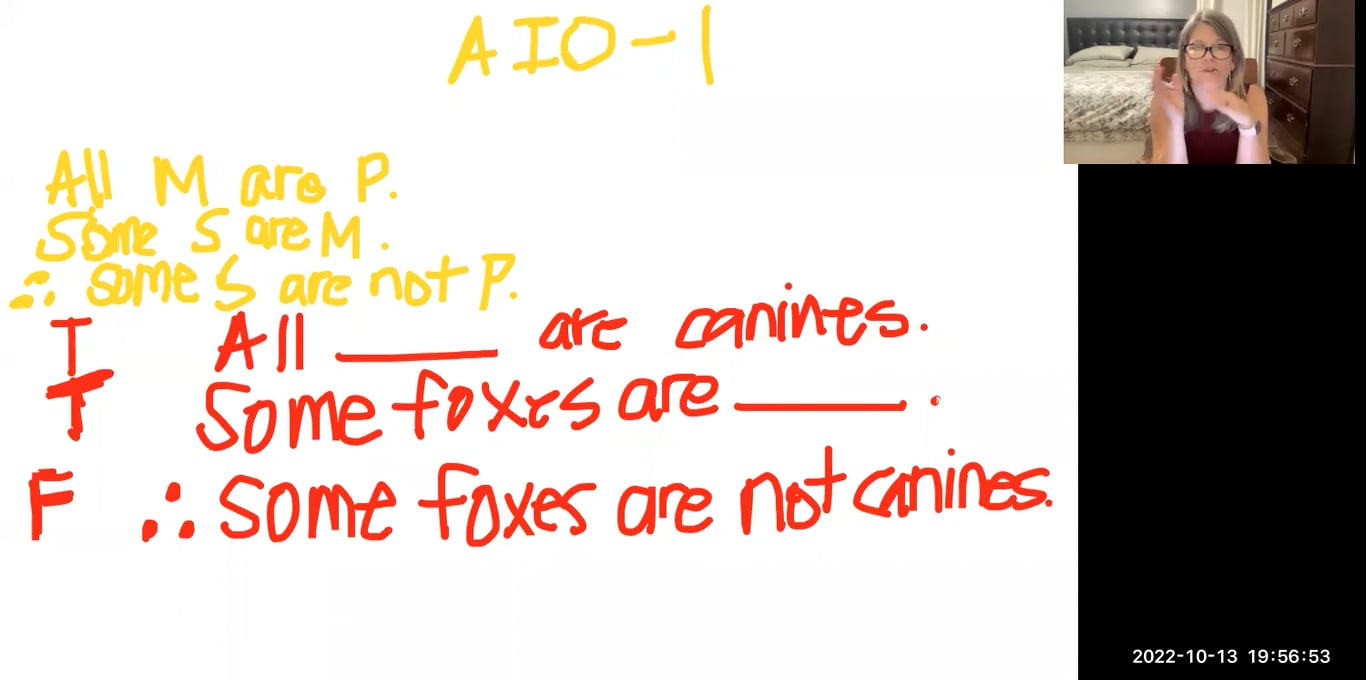 AIO-1
All M are P.
Some S are M.
∴ some S are not P.
T All ______ are canines.
T Some foxes are ______.
F ∴ some foxes are not canines.
2022-10-13 19:56:53